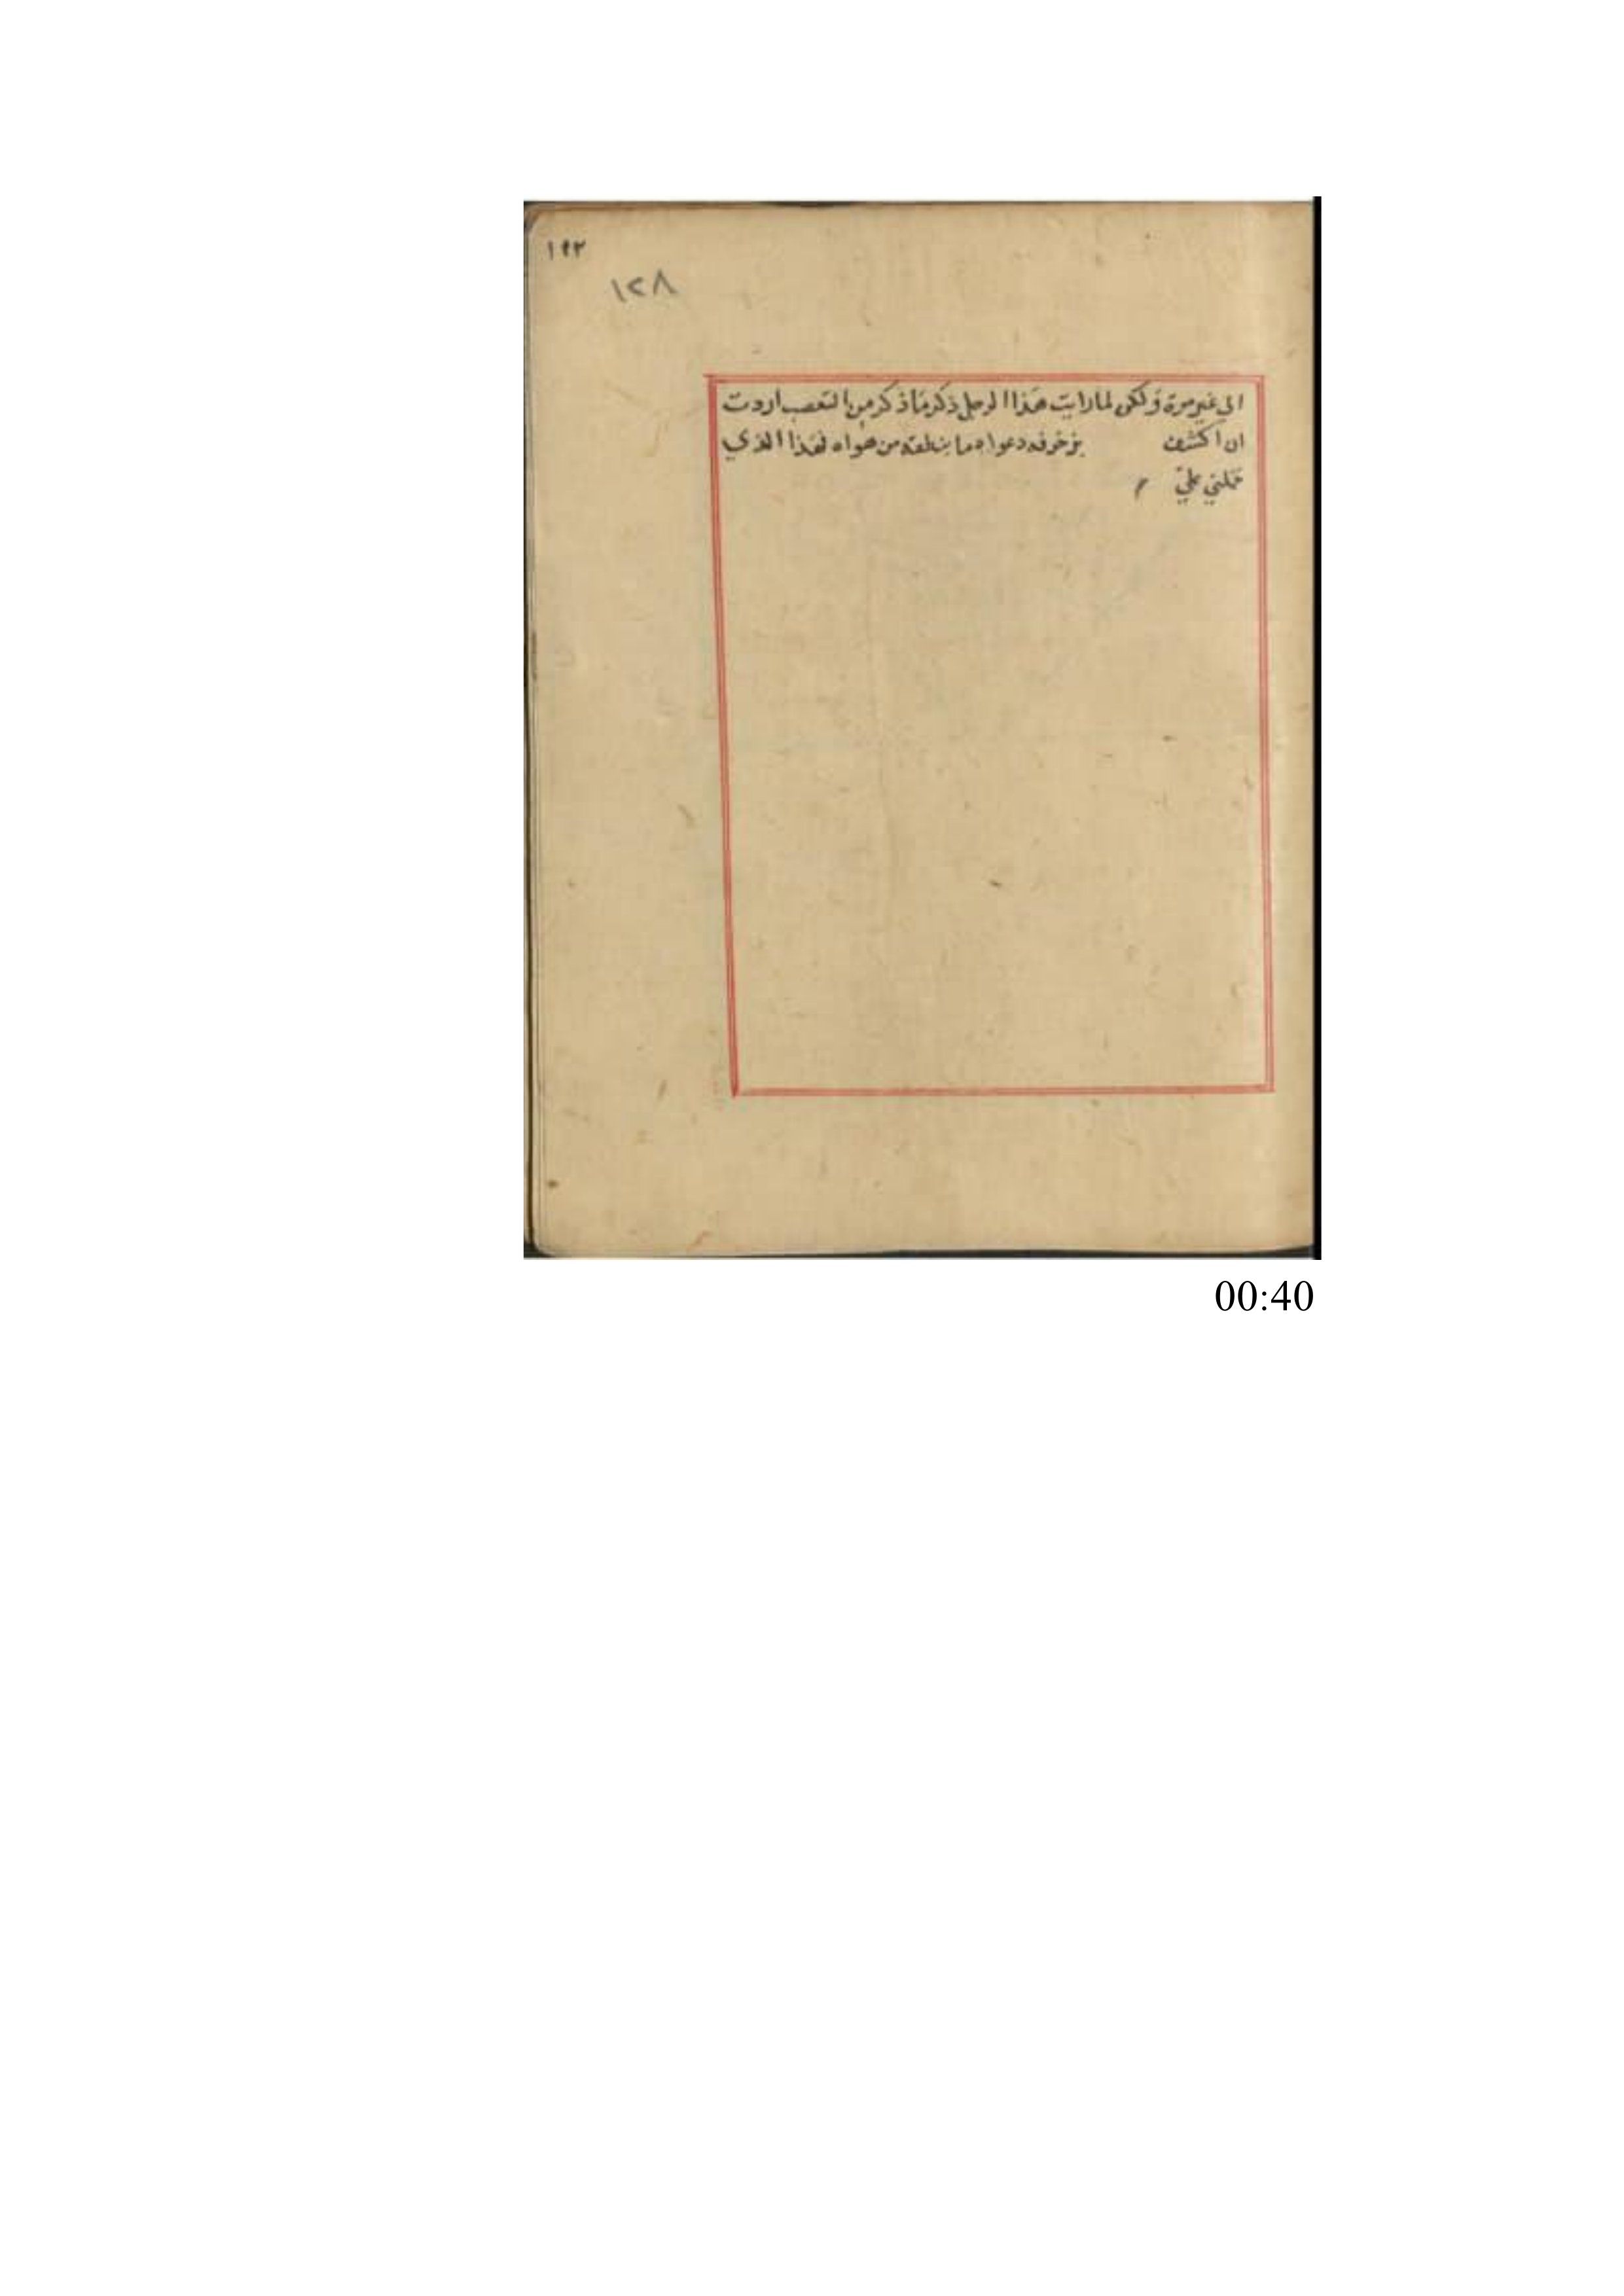 ١٩٢
١٢٨
الى غير مرة ولكن لما رايت هذا الرجل ذكر ما ذكر من التعصب اردت
ان اكشف بزخرفه دعواه من هواه فهذا الذي
حملني على
00:40